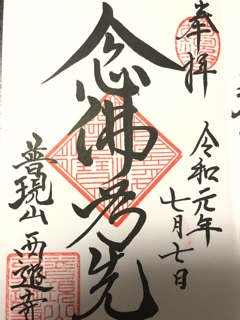 奉拝
令和元年
七月七日
念佛為先
普現山
西迎寺